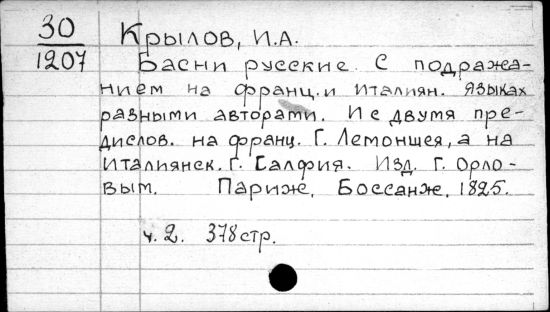 30 Крылов, И.А.
1207 Басни русские. С подража-
нием на франц. и италиян. языках
разными авторами. И с двумя пре-
дислов. на франц. Г. Лемонтея, а на
Италиянск. Г. Салфия. Изд. Г. Орло-
вым. Париж, Боссанж, 1825.
ч. 2. 378 стр.